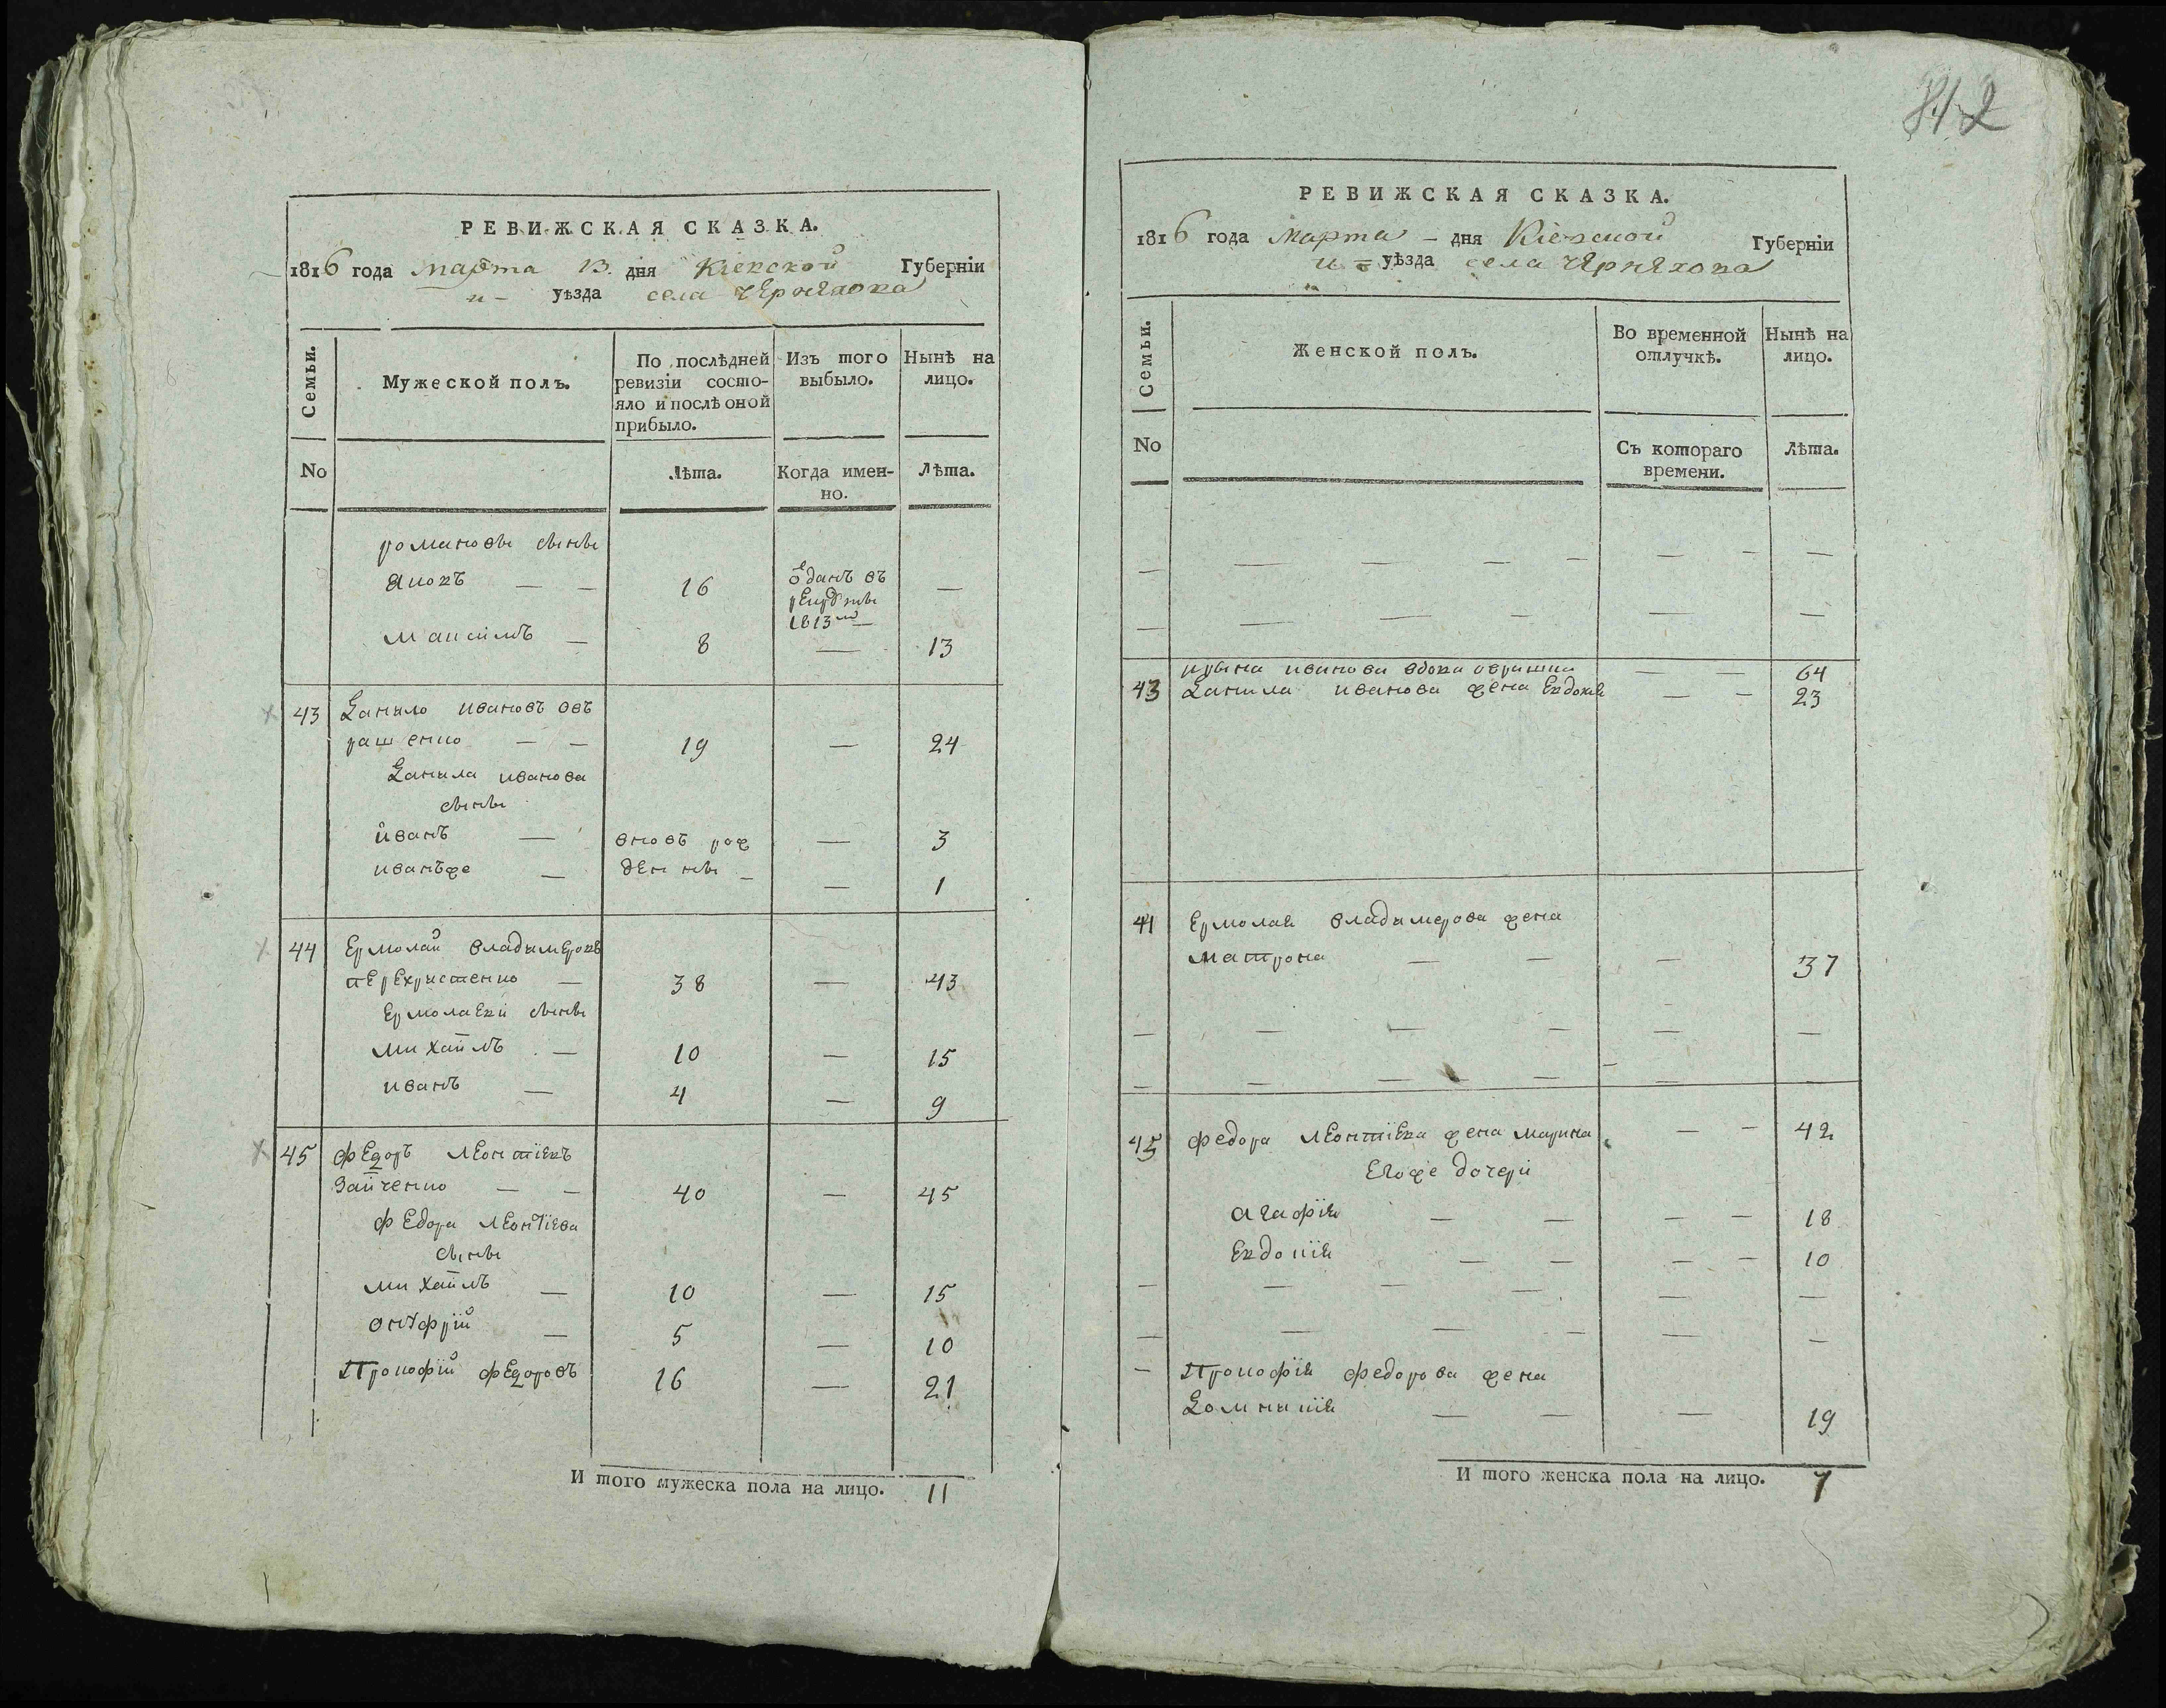 РЕВИЖСКАЯ СКАЗКА.
1816 года марта 13. дня Кіевской Губерніи
и – уѣзда села Черняхова
Семьи.
Мужеской полъ.
По послѣдней ревизіи состояло и послѣ оной прибыло.
Изъ того выбыло.
Нынѣ на лицо.
No
Лѣта.
Когда именно.
Лѣта.
Романовы сыны
Яковъ — — 16 ѿданъ въ рекруты 1813го —
Максимъ — 8 — 13
43 Данило Ивановъ Ов
рашенко — — 19 — 24
Данила Иванова
сыны
Иванъ — вновъ рож — 3
Иванъже — денны — — 1
44 Ермолай Владимеровъ
Перехристенко — 38 — 43
Ермолаеви сыны
Михайлъ — 10 — 15
Иванъ — 4 — 9
45 Федоръ Леонтіевъ
Зайченко — — 40 — 45
Федора Леонтіева
сыны
Михайлъ — 10 — 15
Онуфрій — 5 — 10
Прокофій Федоровъ 16 — 21
И того мужеска пола на лицо. 11
842
РЕВИЖСКАЯ СКАЗКА.
1816 года Марта – дня Кіевской Губерніи
и – уѣзда села Черняхова
Семьи.
Женской полъ.
Во временной отлучкѣ.
Нынѣ на лицо.
No
Съ котораго времени.
Лѣта.
— — — — — — —
— — — — — —
Иванова вдова — — 64
43 Данила Иванова жена Евдокія — — 23
44 Ермолая Владимерова жена
Матрона — — — 37
— — — — — —
— — — — — —
45 Федора Леонтіева жена Марина — — 42
Егоже дочери
Агафія — — — — 18
Евдокія — — — — 10
— — — — — —
— — — — — —
— Прокофія Федорова жена
Домникія — — — 19
И того женска пола на лицо. 7